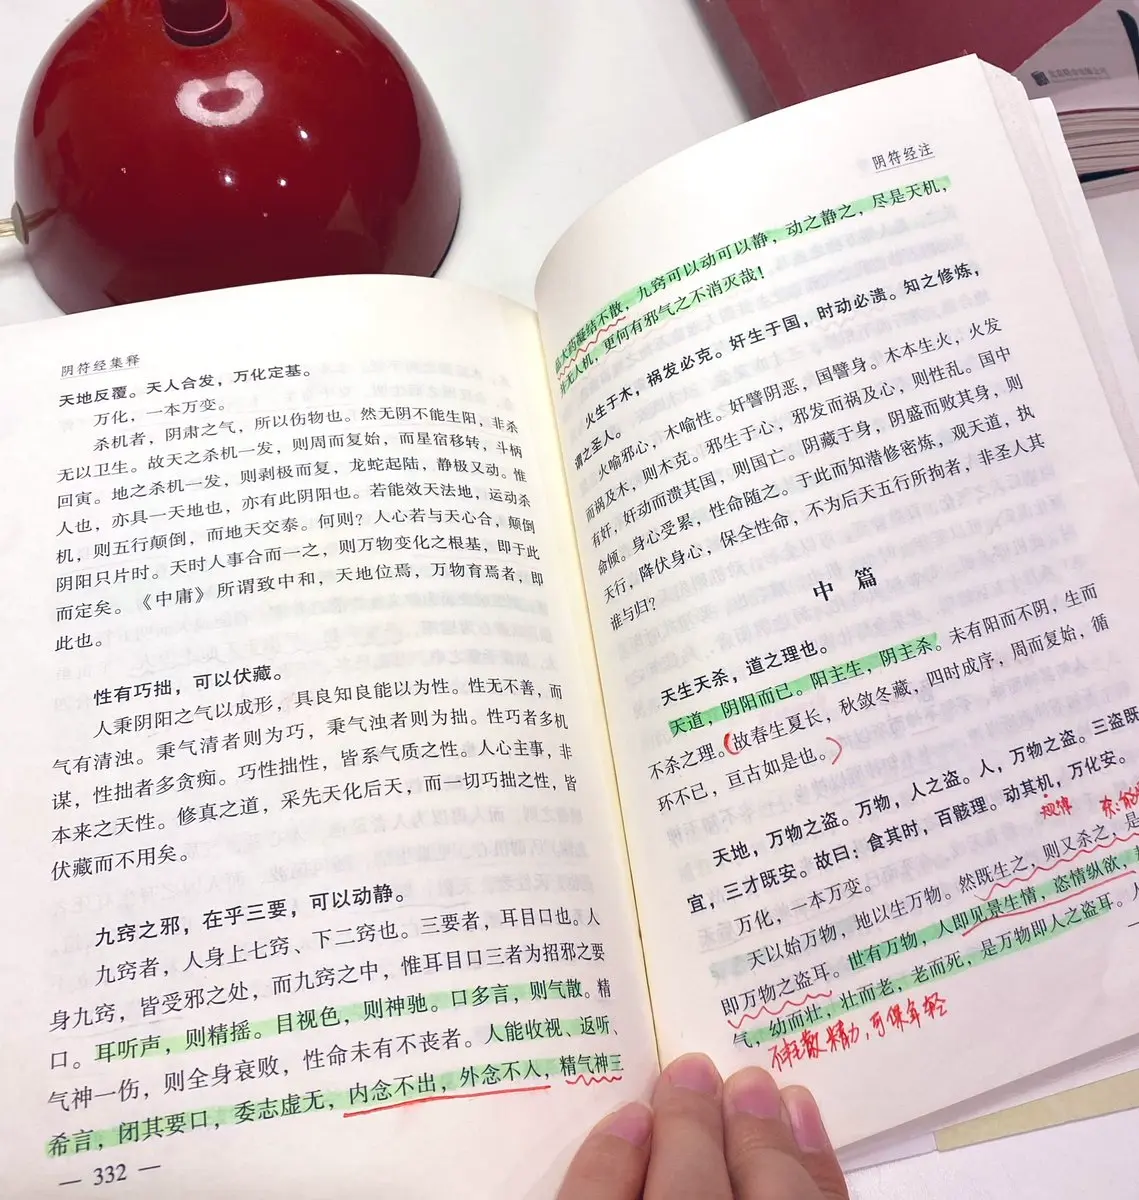 阴符经集释
天地反覆。天人合发，万化定基。
万化，一本万变。
杀机者，阴肃之气，所以伤物也。然无阴不能生阳，非杀
无以卫生。故天之杀机一发，则周而复始，而星宿移转，斗柄
回寅。地之杀机一发，则剥极而复，龙蛇起陆，静极又动。惟
人也，亦具一天地也，亦有此阴阳也。若能效天法地，运动杀
机，则五行颠倒，而地天交泰。何则？人心若与天心合，颠倒
阴阳只片时。天时人事合而一之，则万物变化之根基，即于此
而定矣。《中庸》所谓致中和，天地位焉，万物育焉者，即
此也。
性有巧拙，可以伏藏。
人秉阴阳之气以成形，具良知良能以为性。性无不善，而
气有清浊。秉气清者则为巧，秉气浊者则为拙。性巧者多机
谋，性拙者多贪痴。巧性拙性，皆系气质之性。人心主事，非
本来之天性。修真之道，采先天化后天，而一切巧拙之性，皆
伏藏而不用矣。
九窍之邪，在乎三要，可以动静。
九窍者，人身上七窍、下二窍也。三要者，耳目口也。人
身九窍，皆受邪之处，而九窍之中，惟耳目口三者为招邪之要
口。耳听声，则精摇。目视色，则神驰。口多言，则气散。精
气神一伤，则全身衰败，性命未有不丧者。人能收视、返听、
希言，闭其要口，委志虚无，内念不出，外念不入，精气神三
— 332 —
阴符经注
品大药凝结不散，九窍可以动可以静，动之静之，尽是天机，
并无人机，更何有邪气之不消灭哉！
火生于木，祸发必克。奸生于国，时动必溃。知之修炼，
谓之圣人。
火喻邪心，木喻性。奸譬阴恶，国譬身。木本生火，火发
而祸及木，则木克。邪生于心，邪发而祸及心，则性乱。国中
有奸，奸动而溃其国，则国亡。阴藏于身，阴盛而败其身，则
命倾。身心受累，性命随之。于此而知潜修密炼，观天道，执
天行，降伏身心，保全性命，不为后天五行所拘者，非圣人其
谁与归？
中 篇
天生天杀，道之理也。
天道，阴阳而已。阳主生，阴主杀。未有阳而不阴，生而
不杀之理。故春生夏长，秋敛冬藏，四时成序，周而复始，循
环不已，亘古如是也。
天地，万物之盗。万物，人之盗。人，万物之盗。三盗既
宜，三才既安。故曰：食其时，百骸理。动其机，万化安。
规律
万化，一本万变。
天以始万物，地以生万物。然既生之，则又杀之，是
即万物之盗耳。世有万物，人即见景生情，恣情纵欲，
气，幼而壮，壮而老，老而死，是万物即人之盗耳。人
不耗散精力，可保年轻